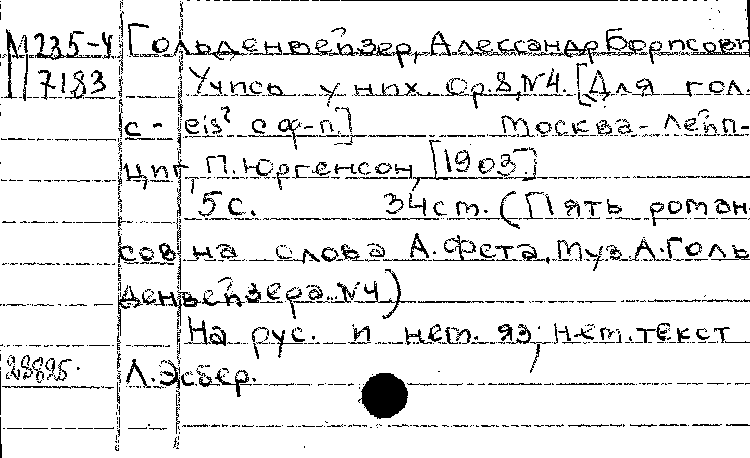 М235-4 Гольденвейзер, Александр Борисови
7183 Учись у них. Ор.8, №4. [Для гол.
с - eis² с ф-п.] Москва-Лейп-
циг, П. Юргенсон, [1903]
5с. 34см. (Пять роман-
сов на слова А. Фета, муз. А. Голь
денвейзера №4)
На рус. и нем. яз; нем. текст
23825. Л. Эсбер.